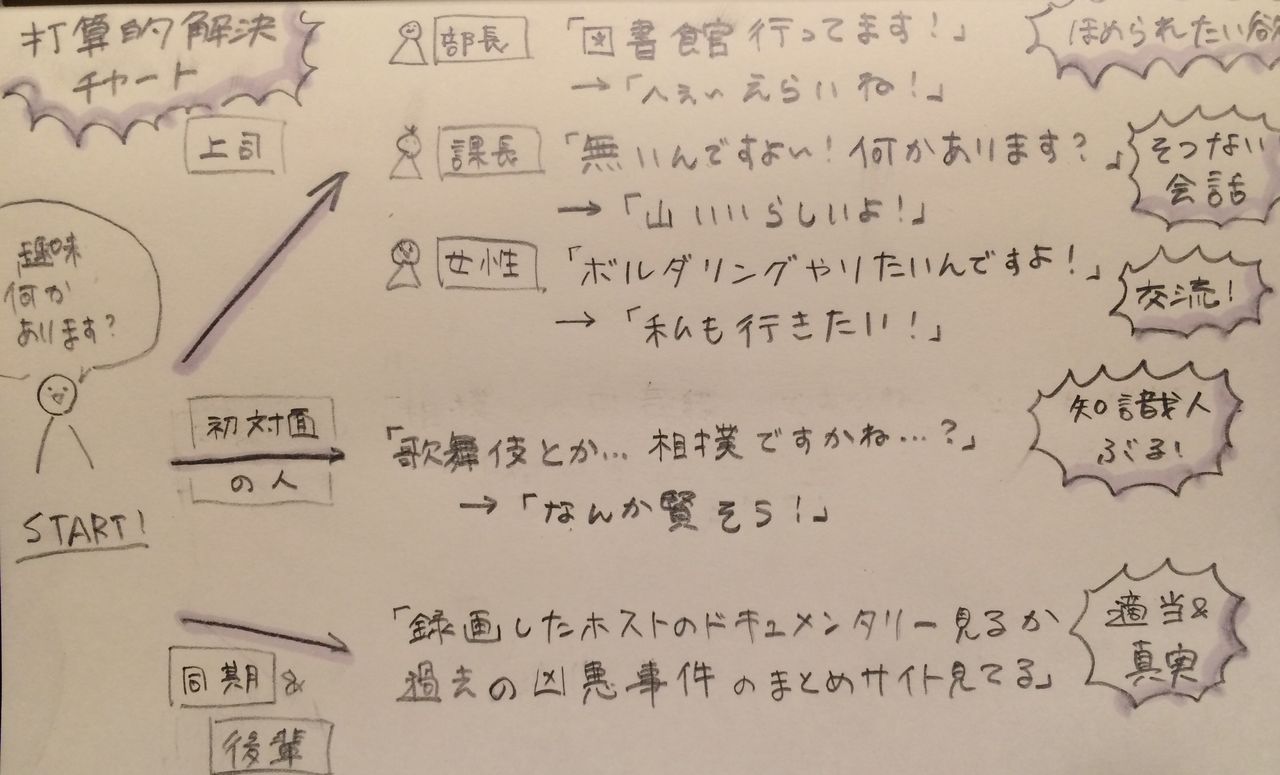 打算的解決
チャート
趣味
何か
あります?
START!
上司
部長 「図書館行ってます!」
→「へぇい えらいね!」
ほめられたい欲
課長 「無いんですよい!何かあります?」
→「山いいらしいよ!」
そつない
会話
女性 「ボルダリングやりたいんですよ!」
→「私も行きたい!」
交流!
初対面
の人
「歌舞伎とか…相撲ですかね…?」
→「なんか賢そう!」
知識人
ぶる!
同期&
後輩
「録画したホストのドキュメンタリー見るか
過去の凶悪事件のまとめサイト見てる」
適当&
真実